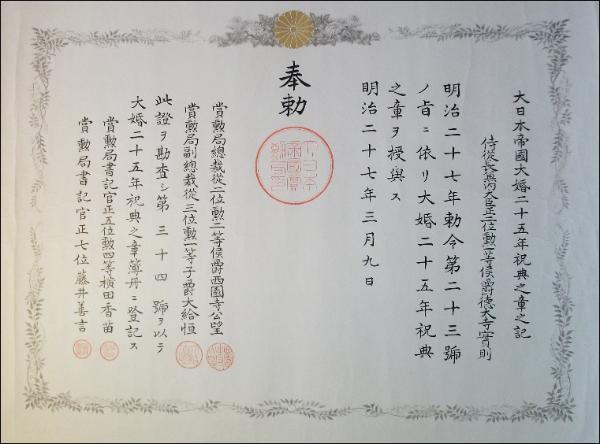 大日本帝國大婚二十五年祝典之章之記
侍從長兼內大臣正二位勳一等侯爵德大寺實則
明治二十七年勅令第二十三號
ノ旨ニ依リ大婚二十五年祝典
之章ヲ授與ス
明治二十七年三月九日
奉勅
賞勳局總裁從二位勳二等侯爵西園寺公望
賞勳局副總裁從三位勳一等子爵大給恒
此證ヲ勘査シ第三十四號ヲ以テ
大婚二十五年祝典之章簿冊ニ登記ス
賞勳局書記官正五位勳四等橫田香苗
賞勳局書記官正七位藤井善言